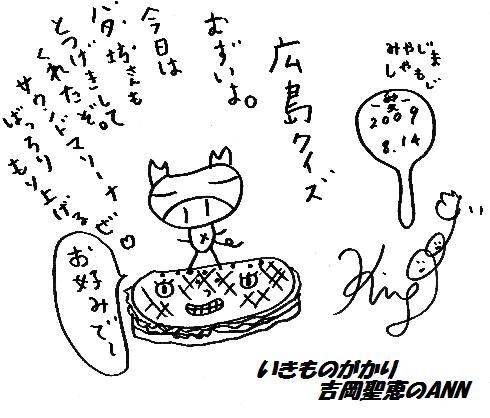 広島クイズ
むずいよ。
今日は
バタ坊さんも
とつげきして
くれたぞ。
サウンドマリーナ
ばっちり
もり上げるぜ
お好みで〜
みやじま
しゃもじ
一笑一
2009
8.14
King
いきものがかり
吉岡聖恵のANN